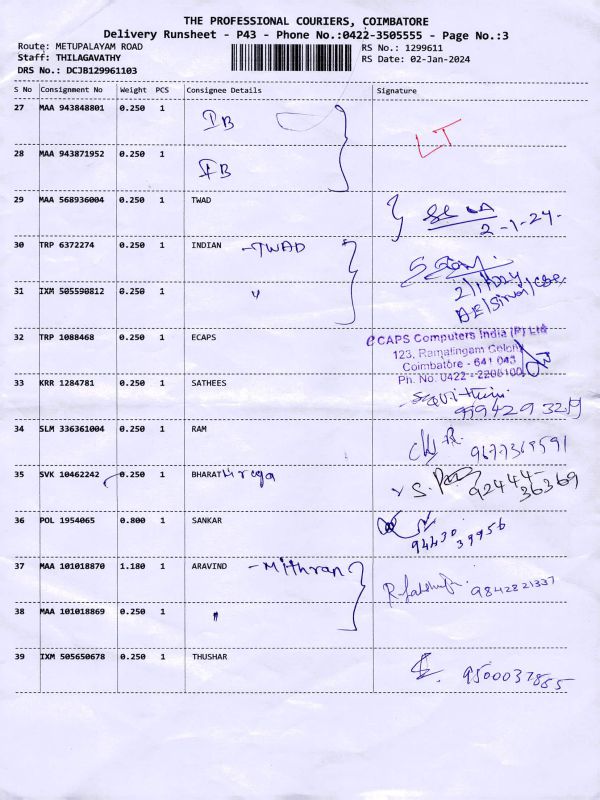 THE PROFESSIONAL COURIERS, COIMBATORE
Delivery Runsheet - P43 - Phone No.:0422-3505555 - Page No.:3
Route: METUPALAYAM ROAD RS No.: 1299611
Staff: THILAGAVATHY RS Date: 02-Jan-2024
DRS No.: DCJB129961103
S No Consignment No Weight PCS Consignee Details Signature
27 MAA 943848801 0.250 1 IB
LT
28 MAA 943871952 0.250 1 IB
29 MAA 568936004 0.250 1 TWAD
2-1-24-
30 TRP 6372274 0.250 1 INDIAN -TWAD
31 IXM 505590812 0.250 1 "
32 TRP 1088468 0.250 1 ECAPS
eCAPS Computers India (P) Ltd
123, Ramalingam Colony
Coimbatore - 641 043
Ph. No. 0422 - 2206100
33 KRR 1284781 0.250 1 SATHEES
34 SLM 336361004 0.250 1 RAM 9677369591
35 SVK 10462242 0.250 1 BHARATHirega
92444-
36369
36 POL 1954065 0.800 1 SANKAR
94430 39956
37 MAA 101018870 1.180 1 ARAVIND -Mithran
9842821337
38 MAA 101018869 0.250 1 "
39 IXM 505650678 0.250 1 THUSHAR 9500037885